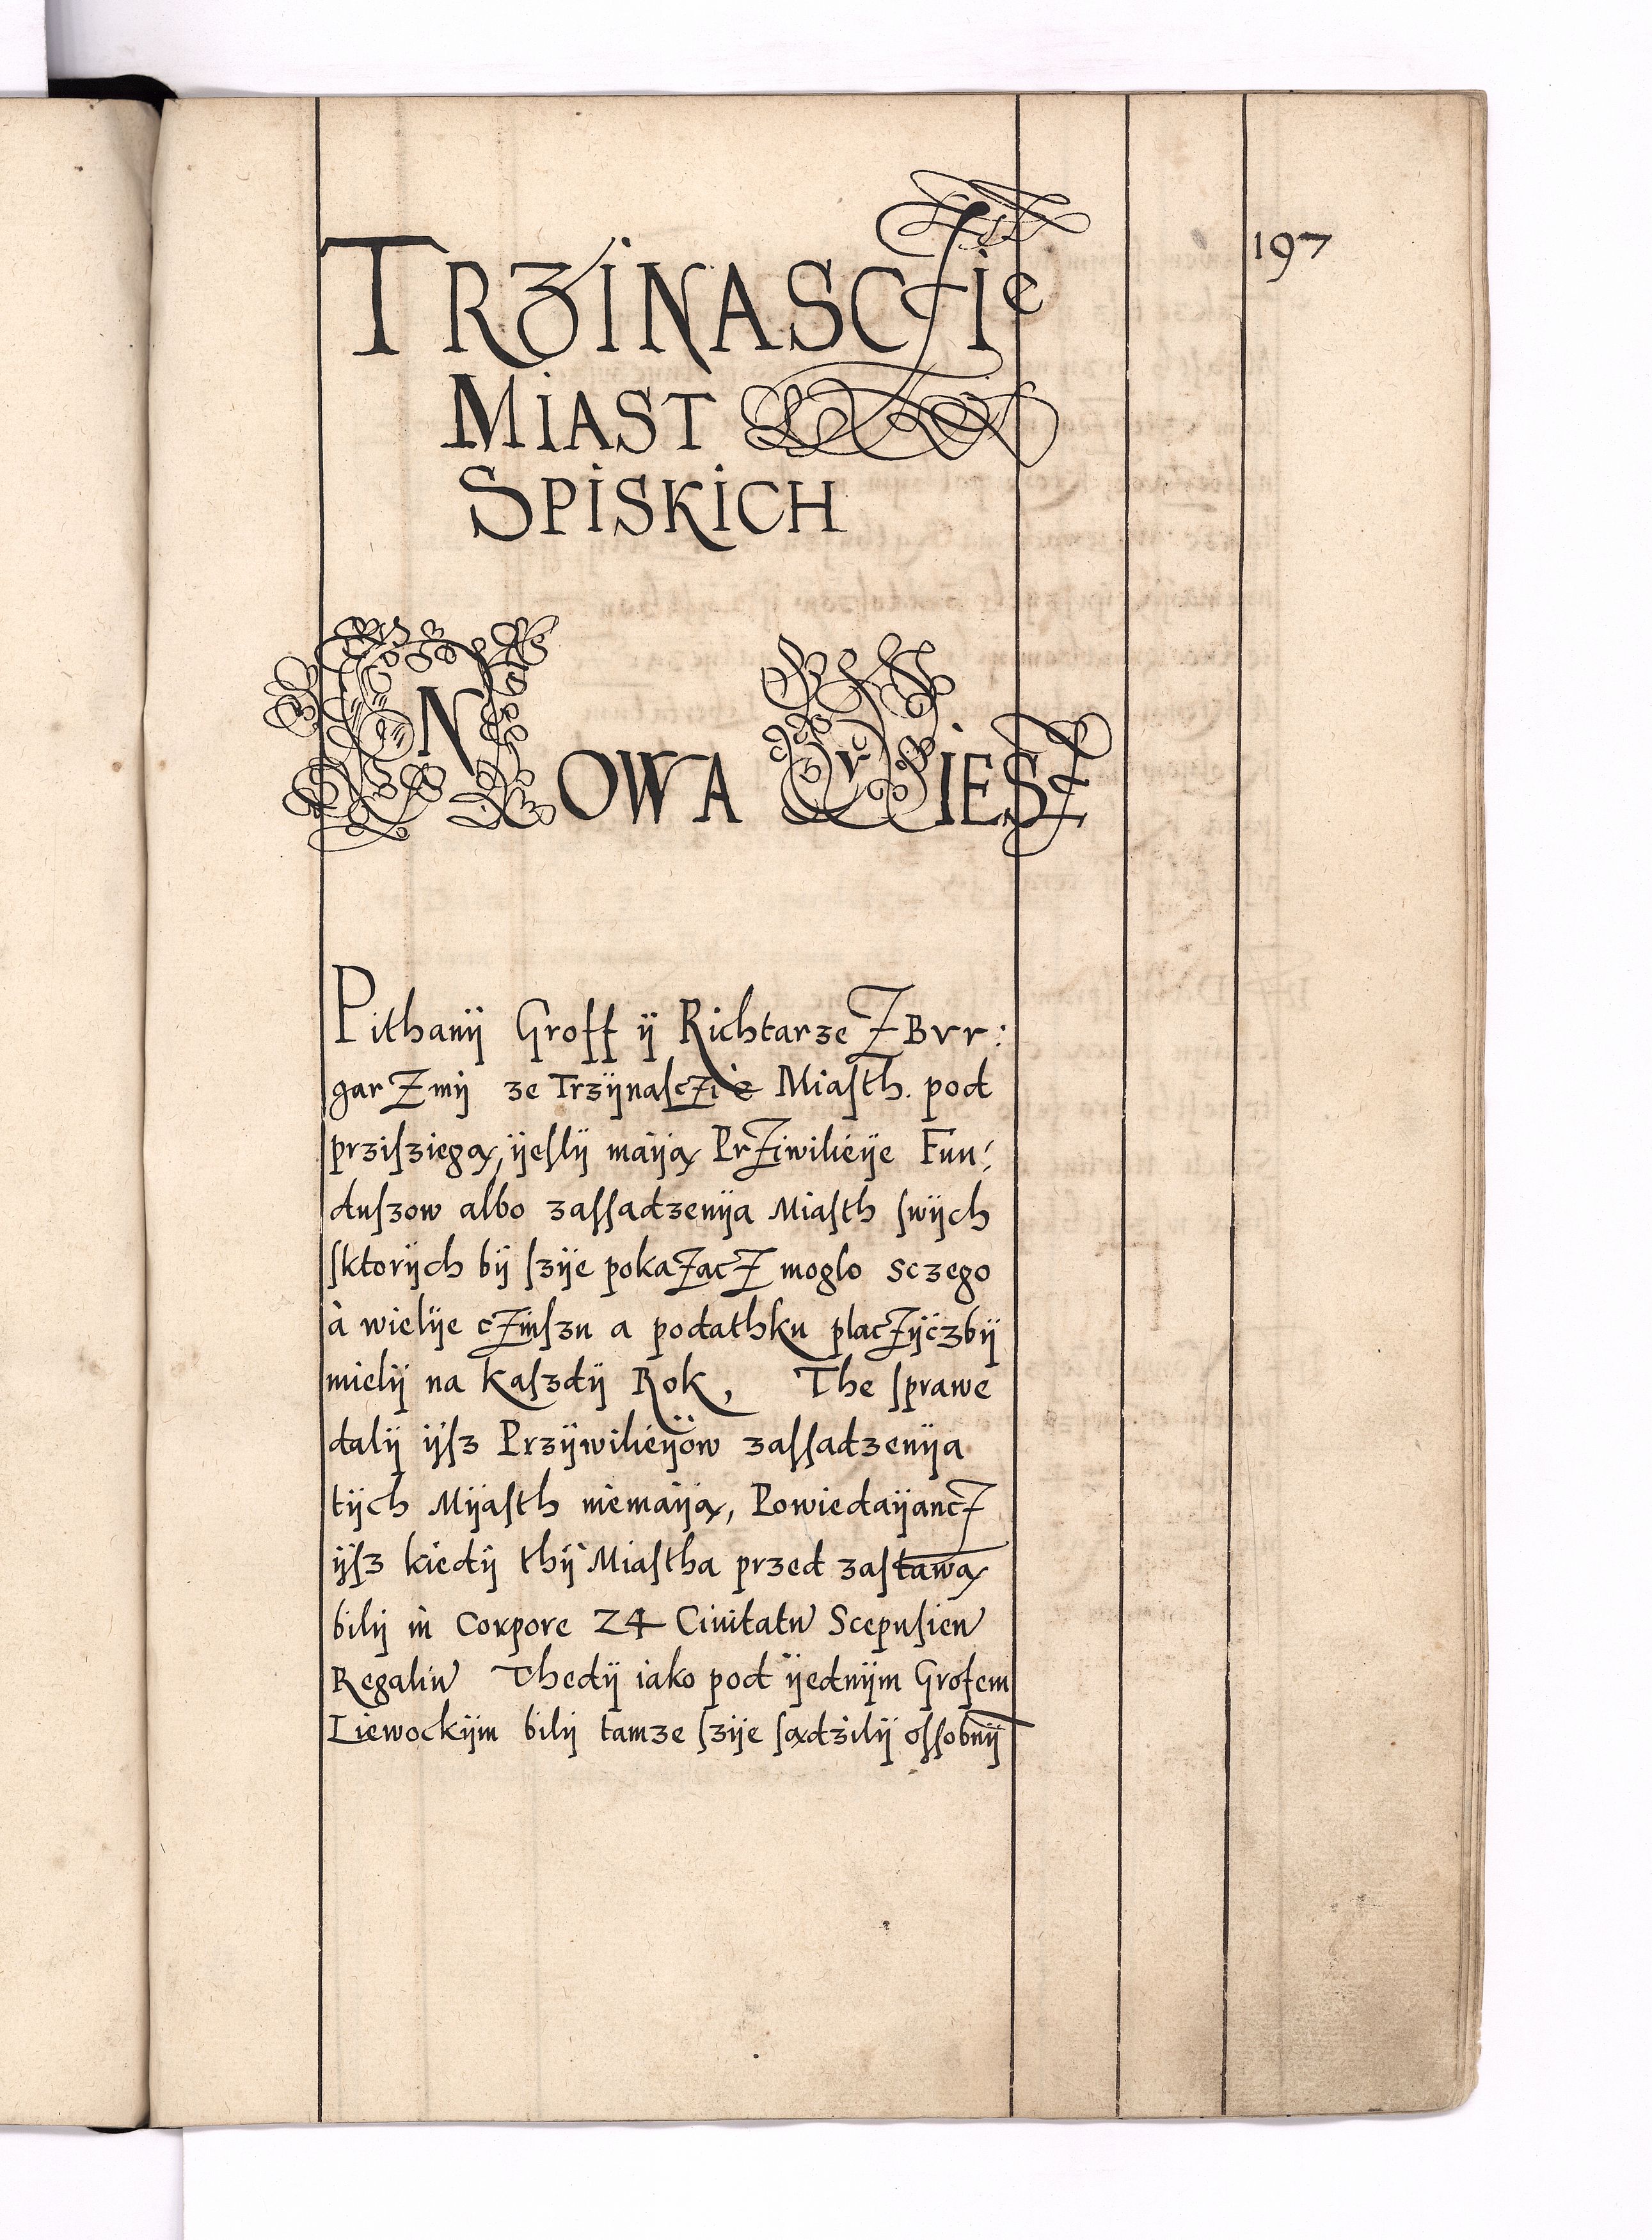 197
TRZINASCZIe
MIAST
SPISKICH
NOWA WIESZ
Pithanÿ Groff ÿ Richtarze Z Bvr:
garZmÿ ze Trzÿnasczie Miaſth. pod
prziſziegą, ÿeſlÿ maÿą PrZiwilieÿe Fun:
duſzow albo zaſſadzenÿa Miaſth ſwÿch
ſktorÿch bÿ ſzÿe pokaZacZ moglo sczego
à wielÿe cZinſzu a podathku placZÿczbÿ
mielÿ na kaſzdÿ Rok, The ſprawe
dalÿ ÿſz Przÿwilieÿow zaſſadzenÿa
tÿch Mÿaſth niemaÿą, PowiedaÿancZ
ÿſz kiedÿ thÿ Miaſtha przed zaſtawą
bilÿ in Corpore 24 Ciuitatu Scepuſien
Regaliu Thedÿ iako pod ÿednÿm Grofem
Liewockÿm bilÿ tamze ſzÿe ſądzilÿ oſſobnÿ